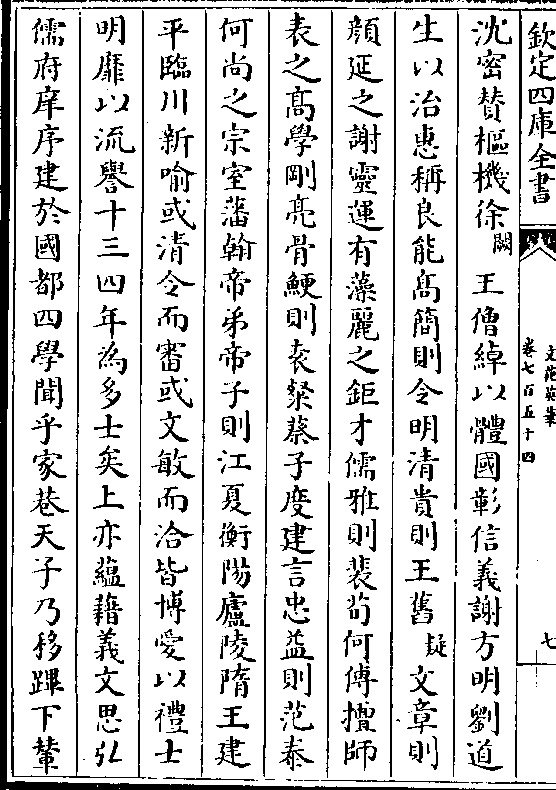 欽定四庫全書
文苑英華
卷七百五十四
七
沈密賛樞機徐闕王僧綽以體國彰信義謝方明劉道
生以治惠稱良能髙簡則令明清貴則王舊疑文章則
顔延之謝靈運有藻麗之鉅才儒雅則裴荀何傅擅師
表之髙學剛亮骨鯁則袁粲蔡子度建言忠益則范泰
何尚之宗室藩翰帝弟帝子則江夏衡陽廬陵隋王建
平臨川新喻或清令而審或文敏而洽皆博愛以禮士
明靡以流譽十三四年為多士矣上亦蘊藉義文思弘
儒府庠序建於國都四學聞乎家巷天子乃移蹕下輦